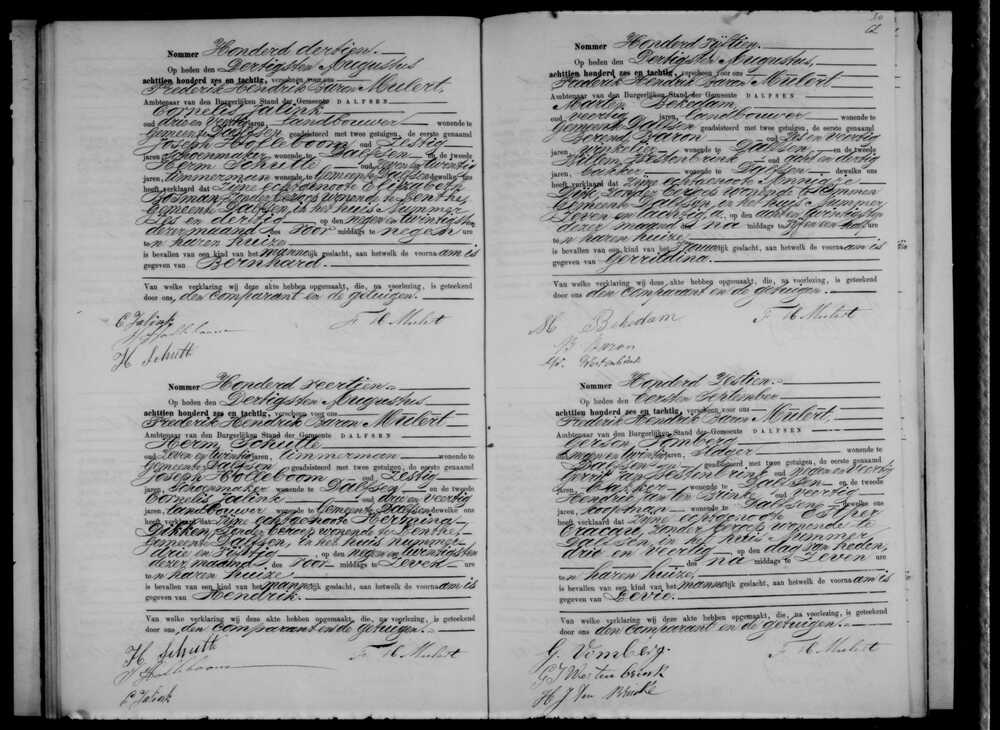 Nommer Honderd dertien.
Op heden den Dertigsten Augustus
achttien honderd zes en tachtig, verscheen voor ons
Frederik Hendrik Baron Mulert,
Ambtenaar van den Burgerlijken Stand der Gemeente DALFSEN
Cornelis Jalink
oud drie en veertig jaren, landbouwer wonende te
Gemeente Dalfsen geadsisteerd met twee getuigen, de eerste genaamd
Joseph Holleboom oud Zestig
jaren, Schoenmaker wonende te Dalfsen en de tweede
Herm Schutte oud zeven en twintig
jaren, timmerman wonende te Gemeente Dalfsen dewelke ons
heeft verklaard dat Zijne echtgenoote Elizabeth
Bosman zonder beroep wonende te Lenthe,
Gemeente Dalfsen, in het huis Nummer
Zes en dertig op den negen en twintigsten
dezer maand des voor middags te negen ure
te n haren huize
is bevallen van een kind van het mannelijk geslacht, aan hetwelk de voornaam is
gegeven van Bernhard.
Van welke verklaring wij deze akte hebben opgemaakt, die, na voorlezing, is geteekend
door ons, den comparant en de getuigen.
C Jalink F H Mulert
J Holleboom
H Schutte
Nommer Honderd veertien.
Op heden den Dertigsten Augustus
achttien honderd zes en tachtig, verscheen voor ons
Frederik Hendrik Baron Mulert
Ambtenaar van den Burgerlijken Stand der Gemeente DALFSEN
Herm Schutte
oud zeven en twintig jaren, timmerman wonende te
Gemeente Dalfsen geadsisteerd met twee getuigen, de eerste genaamd
Joseph Holleboom oud Zestig
jaren, Schoenmaker wonende te Dalfsen en de tweede
Cornelis Jalink oud drie en veertig
jaren, landbouwer wonende te Gemeente Dalfsen dewelke ons
heeft verklaard dat Zijne echtgenoote Hermina
Dikken, zonder beroep wonende te Lenthe,
Gemeente Dalfsen, in het huis nummer
drie en vijftig op den negen en twintigsten
dezer maand des voor middags te zeven ure
te n haren huize
is bevallen van een kind van het mannelijk geslacht, aan hetwelk de voornaam is
gegeven van Hendrik.
Van welke verklaring wij deze akte hebben opgemaakt, die, na voorlezing, is geteekend
door ons, den comparant en de getuigen.
H Schutte F H Mulert
J Holleboom
C Jalink
Nommer Honderd vijftien.
Op heden den Dertigsten Augustus,
achttien honderd zes en tachtig, verscheen voor ons
Frederik Hendrik Baron Mulert
Ambtenaar van den Burgerlijken Stand der Gemeente DALFSEN
Marten Bekedam,
oud veertig jaren, landbouwer wonende te
Gemeente Dalfsen geadsisteerd met twee getuigen, de eerste genaamd
Baron oud
jaren, winkelier wonende te Dalfsen en de tweede
Willem Westenbrink oud acht en dertig
jaren, bakker wonende te Dalfsen dewelke ons
heeft verklaard dat Zijne echtgenoote
zonder beroep wonende te
Gemeente Dalfsen, in het huis Nummer
Zeven en tachtig, a, op den acht en twintigsten
dezer maand des na middags te vijf en een half ure
te n haren huize
is bevallen van een kind van het vrouwelijk geslacht, aan hetwelk de voornaam is
gegeven van Gerritdina.
Van welke verklaring wij deze akte hebben opgemaakt, die, na voorlezing, is geteekend
door ons den comparant en de getuigen.
M Bekedam F H Mulert
B Baron
W. Westenbrink
Nommer Honderd Zestien.
Op heden den Eersten September
achttien honderd zes en tachtig, verscheen voor ons
Frederik Hendrik Baron Mulert,
Ambtenaar van den Burgerlijken Stand der Gemeente DALFSEN
oud negen en twintig jaren, Slager wonende te
Dalfsen geadsisteerd met twee getuigen, de eerste genaamd
Gerrit Jan Westenbrink oud negen en veertig
jaren, bakker wonende te Dalfsen en de tweede
Hendrik Jan ten Brinke oud veertig
jaren, koopman wonende te Dalfsen dewelke ons
heeft verklaard dat Zijne echtgenoote Esther
zonder beroep wonende te
Dalfsen in het huis Nummer
drie en veertig op den dag van heden,
des na middags te zeven ure
te n haren huize
is bevallen van een kind van het mannelijk geslacht, aan hetwelk de voornaam is
gegeven van Levie.
Van welke verklaring wij deze akte hebben opgemaakt, die, na voorlezing, is geteekend
door ons den comparant en de getuigen.
F H Mulert
G J Westenbrink
H J ten Brinke